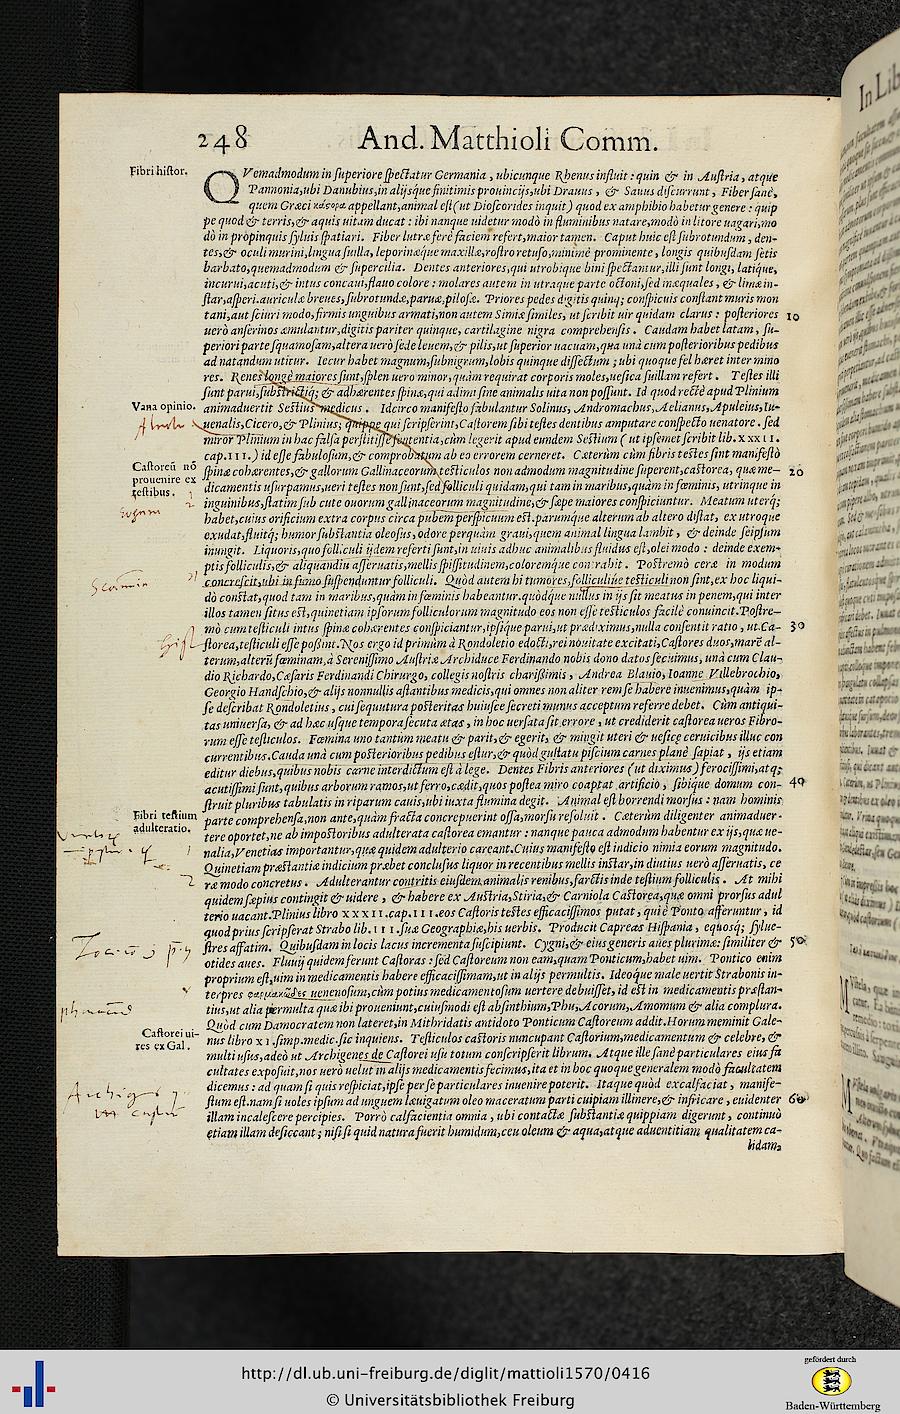 248 And. Matthioli Comm.
Fibri histor.
QVemadmodum in superiore spectatur Germania, ubicunque Rhenus influit: quin & in Austria, atque
Pannonia, ubi Danubius, in alijsque finitimis prouincijs, ubi Drauus, & Sauus discurrunt, Fiber sanè,
quem Græci κάστορα appellant, animal est (ut Dioscorides inquit) quod ex amphibio habetur genere: quip
pe quod & terris, & aquis uitam ducat: ibi nanque uidetur modò in fluminibus natare, modò in litore uagari, mo
dò in propinquis syluis spatiari. Fiber lutræ ferè faciem refert, maior tamen. Caput huic est subrotundum, den-
tes, & oculi murini, lingua suilla, leporinæque maxillæ, rostro retuso, minimè prominente, longis quibusdam setis
barbato, quemadmodum & supercilia. Dentes anteriores, qui utrobique bini spectantur, illi sunt longi, latique,
incurui, acuti, & intus concaui, flauo colore: molares autem in utraque parte octoni, sed inæquales, & limæ in-
star, asperi. auriculæ breues, subrotundæ, paruæ, pilosæ. Priores pedes digitis quinq; conspicuis constant muris mon
tani, aut sciuri modo, firmis unguibus armati, non autem Simiæ similes, ut scribit uir quidam clarus: posteriores 10
uerò anserinos æmulantur, digitis pariter quinque, cartilagine nigra comprehensis. Caudam habet latam, su-
periori parte squamosam, altera uerò sede leuem, & pilis, ut superior uacuam, qua unà cum posterioribus pedibus
ad natandum utitur. Iecur habet magnum, subnigrum, lobis quinque dissectum; ubi quoque fel hæret inter mino
res. Renes longè maiores sunt, splen uero minor, quàm requirat corporis moles, uesica suillam refert. Testes illi
sunt parui, substrictiq́; & adhærentes spinæ, qui adimi sine animalis uita non possunt. Id quod rectè apud Plinium
Vana opinio.
animaduertit Sestius medicus. Idcirco manifestò fabulantur Solinus, Andromachus, Aelianus, Apuleius, Iu-
uenalis, Cicero, & Plinius; quippe qui scripserint, Castorem sibi testes dentibus amputare conspecto uenatore. sed
miror Plinium in hac falsa perstitisse sententia, cùm legerit apud eundem Sestium (ut ipsemet scribit lib. XXXII.
cap. III.) id esse fabulosum, & comprobatum ab eo errorem cerneret. Cæterùm cùm fibris testes sint manifestò
Castoreũ nõ
prouenire ex
testibus.
spinæ cohærentes, & gallorum Gallinaceorum testiculos non admodum magnitudine superent, castorea, quæ me- 20
dicamentis usurpamus, ueri testes non sunt, sed folliculi quidam, qui tam in maribus, quàm in fœminis, utrinque in
inguinibus, statim sub cute ouorum gallinaceorum magnitudine, & sæpe maiores conspiciuntur. Meatum uterq;
habet, cuius orificium extra corpus circa pubem perspicuum est. parumque alterum ab altero distat, ex utroque
exudat, fluitq́; humor substantia oleosus, odore perquàm graui, quem animal lingua lambit, & deinde seipsum
inungit. Liquoris, quo folliculi ijdem referti sunt, in uiuis adhuc animalibus fluidus est, olei modo: deinde exem-
ptis folliculis, & aliquandiu asseruatis, mellis spissitudinem, coloremque contrahit. Postremò ceræ in modum
concrescit, ubi in fumo suspenduntur folliculi. Quòd autem hi tumores, folliculiue testiculi non sint, ex hoc liqui-
dò constat, quod tam in maribus, quàm in fœminis habeantur. quòdque nullus in ijs sit meatus in penem, qui inter
illos tamen situs est, quinetiam ipsorum folliculorum magnitudo eos non esse testiculos facilè conuincit. Postre-
mò cum testiculi intus spinæ cohærentes conspiciantur, ipsique parui, ut prædiximus, nulla consentit ratio, ut Ca- 30
storea, testiculi esse possint. Nos ergo id primùm à Rondoletio edocti, rei nouitate excitati, Castores duos, marẽ al-
terum, alterũ fœminam, à Serenissimo Austriæ Archiduce Ferdinando nobis dono datos secuimus, unà cum Clau-
dio Richardo, Cæsaris Ferdinandi Chirurgo, collegis nostris charissimis, Andrea Blauio, Ioanne Villebrochio,
Georgio Handschio, & alijs nonnullis astantibus medicis, qui omnes non aliter rem se habere inuenimus, quàm ip-
se describat Rondoletius, cui sequutura posteritas huiusce secreti munus acceptum referre debet. Cùm antiqui-
tas uniuersa, & ad hæc usque tempora secuta ætas, in hoc uersata sit errore, ut crediderit castorea ueros Fibro-
rum esse testiculos. Fœmina uno tantùm meatu & parit, & egerit, & mingit uteri & uesicæ ceruicibus illuc con
currentibus. Cauda unà cum posterioribus pedibus estur, & quòd gustatu piscium carnes planè sapiat, ijs etiam
editur diebus, quibus nobis carne interdictum est à lege. Dentes Fibris anteriores (ut diximus) ferocissimi, atq;
acutissimi sunt, quibus arborum ramos, ut ferro, cædit, quos postea miro coaptat artificio, sibique domum con- 40
struit pluribus tabulatis in riparum cauis, ubi iuxta flumina degit. Animal est horrendi morsus: nam hominis
Fibri testium
adulteratio.
parte comprehensa, non ante, quàm fracta concrepuerint ossa, morsu resoluit. Cæterùm diligenter animaduer-
tere oportet, ne ab impostoribus adulterata castorea emantur: nanque pauca admodum habentur ex ijs, quæ ue-
nalia, Venetias importantur, quæ quidem adulterio careant. Cuius manifesto est indicio nimia eorum magnitudo.
Quinetiam præstantiæ indicium præbet conclusus liquor in recentibus mellis instar, in diutius uerò asseruatis, ce
ræ modo concretus. Adulterantur contritis eiusdem animalis renibus, farctis inde testium folliculis. At mihi
quidem sæpius contingit & uidere, & habere ex Austria, Stiria, & Carniola Castorea, quæ omni prorsus adul
terio uacant. Plinius libro XXXII. cap. III. eos Castoris testes efficacissimos putat, qui è Ponto afferuntur, id
quod prius scripserat Strabo lib. III. suæ Geographiæ, his uerbis. Producit Capreas Hispania, equosq́; sylue-
stres affatim. Quibusdam in locis lacus incrementa suscipiunt. Cygni, & eius generis aues plurimæ: similiter & 50
otides aues. Fluuij quidem ferunt Castoras: sed Castoreum non eam, quam Ponticum, habet uim. Pontico enim
proprium est, uim in medicamentis habere efficacissimam, ut in alijs permultis. Ideoque male uertit Strabonis in-
terpres φαρμακώδες uenenosum, cùm potius medicamentosum uertere debuisset, id est in medicamentis præstan-
tius, ut alia permulta quæ ibi proueniunt, cuiusmodi est absinthium, Phu, Acorum, Amomum & alia complura.
Quòd cum Damocratem non lateret, in Mithridatis antidoto Ponticum Castoreum addit. Horum meminit Gale-
Castorei ui-
res ex Gal.
nus libro XI. simp. medic. sic inquiens. Testiculos castoris nuncupant Castorium, medicamentum & celebre, &
multi usus, adeò ut Archigenes de Castorei usu totum conscripserit librum. Atque ille sanè particulares eius fa
cultates exposuit, nos uerò uelut in alijs medicamentis fecimus, ita et in hoc quoque generalem modò facultatem
dicemus: ad quam si quis respiciat, ipse per se particulares inuenire poterit. Itaque quòd excalfaciat, manife-
stum est. nam si uoles ipsum ad unguem læuigatum oleo maceratum parti cuipiam illinere, & infricare, euidenter 60
illam incalescere percipies. Porrò calfacientia omnia, ubi contactæ substantiæ quippiam digerunt, continuò
etiam illam desiccant; nisi si quid natura fuerit humidum, ceu oleum & aqua, atque aduentitiam qualitatem ca-
lidam,
In Lib
http://dl.ub.uni-freiburg.de/diglit/mattioli1570/0416
© Universitätsbibliothek Freiburg
gefördert durch
Baden-Württemberg